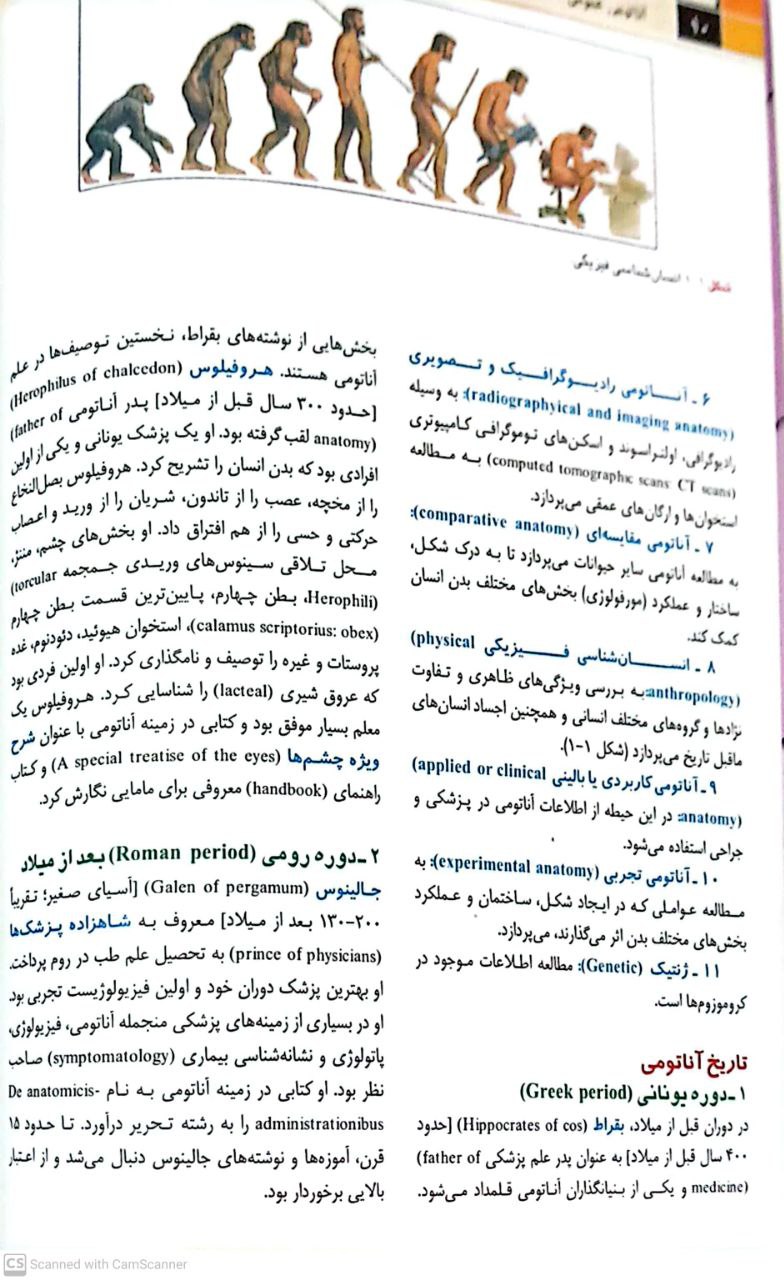 آناتومی عمومی
شکل ۱-۱ انسان‌شناسی فیزیکی
۶ـ آنـاتومی رادیـوگرافـیک و تـصویری
(radiographyical and imaging anatomy): به وسیله
رادیوگرافی، اولتراسوند و اسکن‌های توموگرافی کامپیوتری
(computed tomographic scans: CT scans) بـه مـطالعه
استخوان‌ها و ارگان‌های عمقی می‌پردازد.
۷ ـ آناتومی مقایسه‌ای (comparative anatomy):
به مطالعه آناتومی سایر حیوانات می‌پردازد تا بـه درک شکل،
ساختار و عملکرد (مورفولوژی) بخش‌های مختلف بدن انسان
کمک کند.
۸ ـ انسـان‌شناسی فـیزیکی (physical
anthropology): بـه بررسی ویـژگی‌های ظاهری و تـفاوت
نژادها و گروه‌های مختلف انسانی و همچنین اجساد انسان‌های
ماقبل تاریخ می‌پردازد (شکل ۱-۱).
۹ـ آناتومی کاربردی یا بالینی (applied or clinical
anatomy): در این حیطه از اطلاعات آناتومی در پزشکی و
جراحی استفاده می‌شود.
۱۰ـ آناتومی تجربی (experimental anatomy): به
مـطالعه عـواملی کـه در ایـجاد شکل، ساختمان و عـملکرد
بخش‌های مختلف بدن اثر می‌گذارند، می‌پردازد.
۱۱ـ ژنتیک (Genetic): مطالعه اطـلاعات مـوجود در
کروموزوم‌ها است.
تاریخ آناتومی
۱ـدوره یونانی (Greek period)
در دوران قبل از میلاد، بقراط (Hippocrates of cos) [حدود
۴۰۰ سال قبل از میلاد] به عنوان پدر علم پزشکی (father of
medicine) و یکـی از بـنیانگذاران آناتومی قلمداد مـی‌شود.
بخش‌هایی از نوشته‌های بقراط، نـخستین تـوصیف‌ها در علم
آناتومی هستند. هـروفیلوس (Herophilus of chalcedon)
[حدود ۳۰۰ سال قـبل از مـیلاد] پـدر آناتومی (father of
anatomy) لقب گرفته بود. او یک پزشک یونانی و یکی از اولین
افرادی بود که بدن انسان را تشریح کرد. هروفیلوس بصل‌النخاع
را از مخچه، عصب را از تاندون، شریان را از وریـد و اعـصاب
حرکتی و حسی را از هم افتراق داد. او بخش‌های چشم، مننژ،
مـحل تـلاقی سـینوس‌های وریـدی جـمجمه (torcular
Herophili)، بـطن چهارم، پـایین‌ترین قسمت بـطن چـهارم
(calamus scriptorius: obex)، استخوان هیوئید، دئودنوم، غده
پروستات و غیره را توصیف و نامگذاری کرد. او اولین فردی بود
که عروق شیری (lacteal) را شناسایی کـرد. هـروفیلوس یک
معلم بسیار موفق بود و کتابی در زمینه آناتومی با عنوان شرح
ویژه چشم‌ها (A special treatise of the eyes) و کتاب
راهنمای (handbook) معروفی برای مامایی نگارش کرد.
۲ـدوره رومی (Roman period) بعد از میلاد
جـالینوس (Galen of pergamum) [آسیای صغیر؛ تقریباً
۲۰۰-۱۳۰ بعد از مـیلاد] مـعروف بـه شـاهزاده پـزشک‌ها
(prince of physicians) به تحصیل علم طب در روم پرداخت.
او بهترین پزشک دوران خود و اولین فیزیولوژیست تجربی بود.
او در بسیاری از زمینه‌های پزشکی منجمله آناتومی، فیزیولوژی،
پاتولوژی و نشانه‌شناسی بیماری (symptomatology) صاحب
نظر بود. او کتابی در زمینه آناتومی بـه نـام De anatomicis-
administrationibus را به رشته تحریر درآورد. تـا حدود ۱۵
قرن، آموزه‌ها و نوشته‌های جالینوس دنبال می‌شد و از اعتبار
بالایی برخوردار بود.
CS Scanned with CamScanner